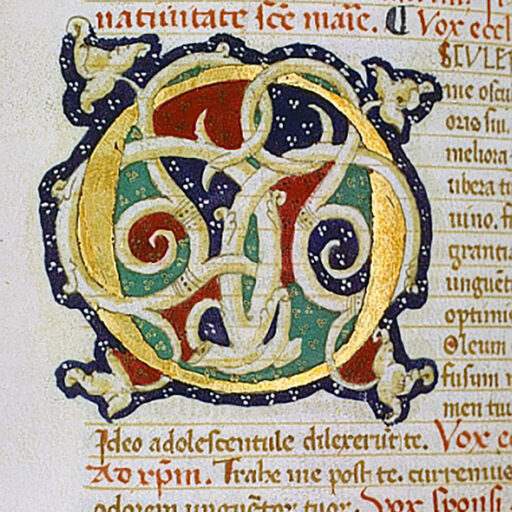 natiuitate sc̄e marie. ¶ Vox eccl
O SCULE
me oscu
oris sui.
meliora
ubera tu
uino. fr
grantia
unguēt
optimis
Oleum
fusum n
men tuū
Ideo adolescentule dilexerūt te. Vox ec
Ad xp̄m. Trahe me post te. curremus
odorem unguētor tuor. Vox sponsi